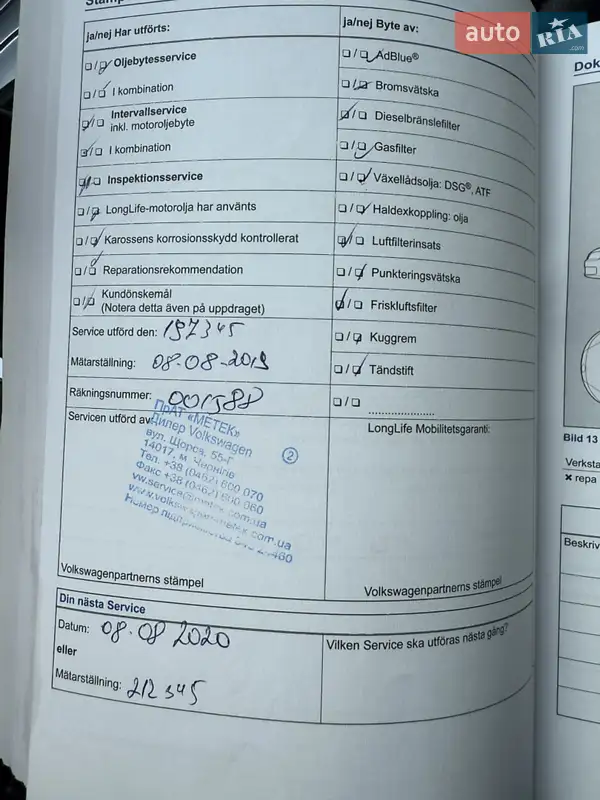 auto RIA .com
ja/nej Har utförts:
ja/nej Byte av:
Oljebytesservice
I kombination
Intervallservice
inkl. motoroljebyte
I kombination
Inspektionsservice
LongLife-motorolja har använts
Karossens korrosionsskydd kontrollerat
Reparationsrekommendation
Kundönskemål
(Notera detta även på uppdraget)
AdBlue®
Bromsvätska
Dieselbränslefilter
Gasfilter
Växellådsolja: DSG®, ATF
Haldexkoppling: olja
Luftfilterinsats
Punkteringsvätska
Friskluftsfilter
Kuggrem
Tändstift
Service utförd den: 197345
Mätarställning: 08.08.2019
Räkningsnummer: 001588
Servicen utförd av:
ПрАТ «МЕТЕК»
Дилер Volkswagen
вул. Щорса, 55-Г
14017, м. Чернігів
Тел. +38 (0462) 600 070
Факс +38 (0462) 600 060
②
LongLife Mobilitetsgaranti:
Volkswagenpartnerns stämpel
Volkswagenpartnerns stämpel
Din nästa Service
Datum: 08.08 2020
eller
Mätarställning: 212345
Vilken Service ska utföras nästa gång?
Dok
Bild 13
Verksta
✖ repa
Beskriv